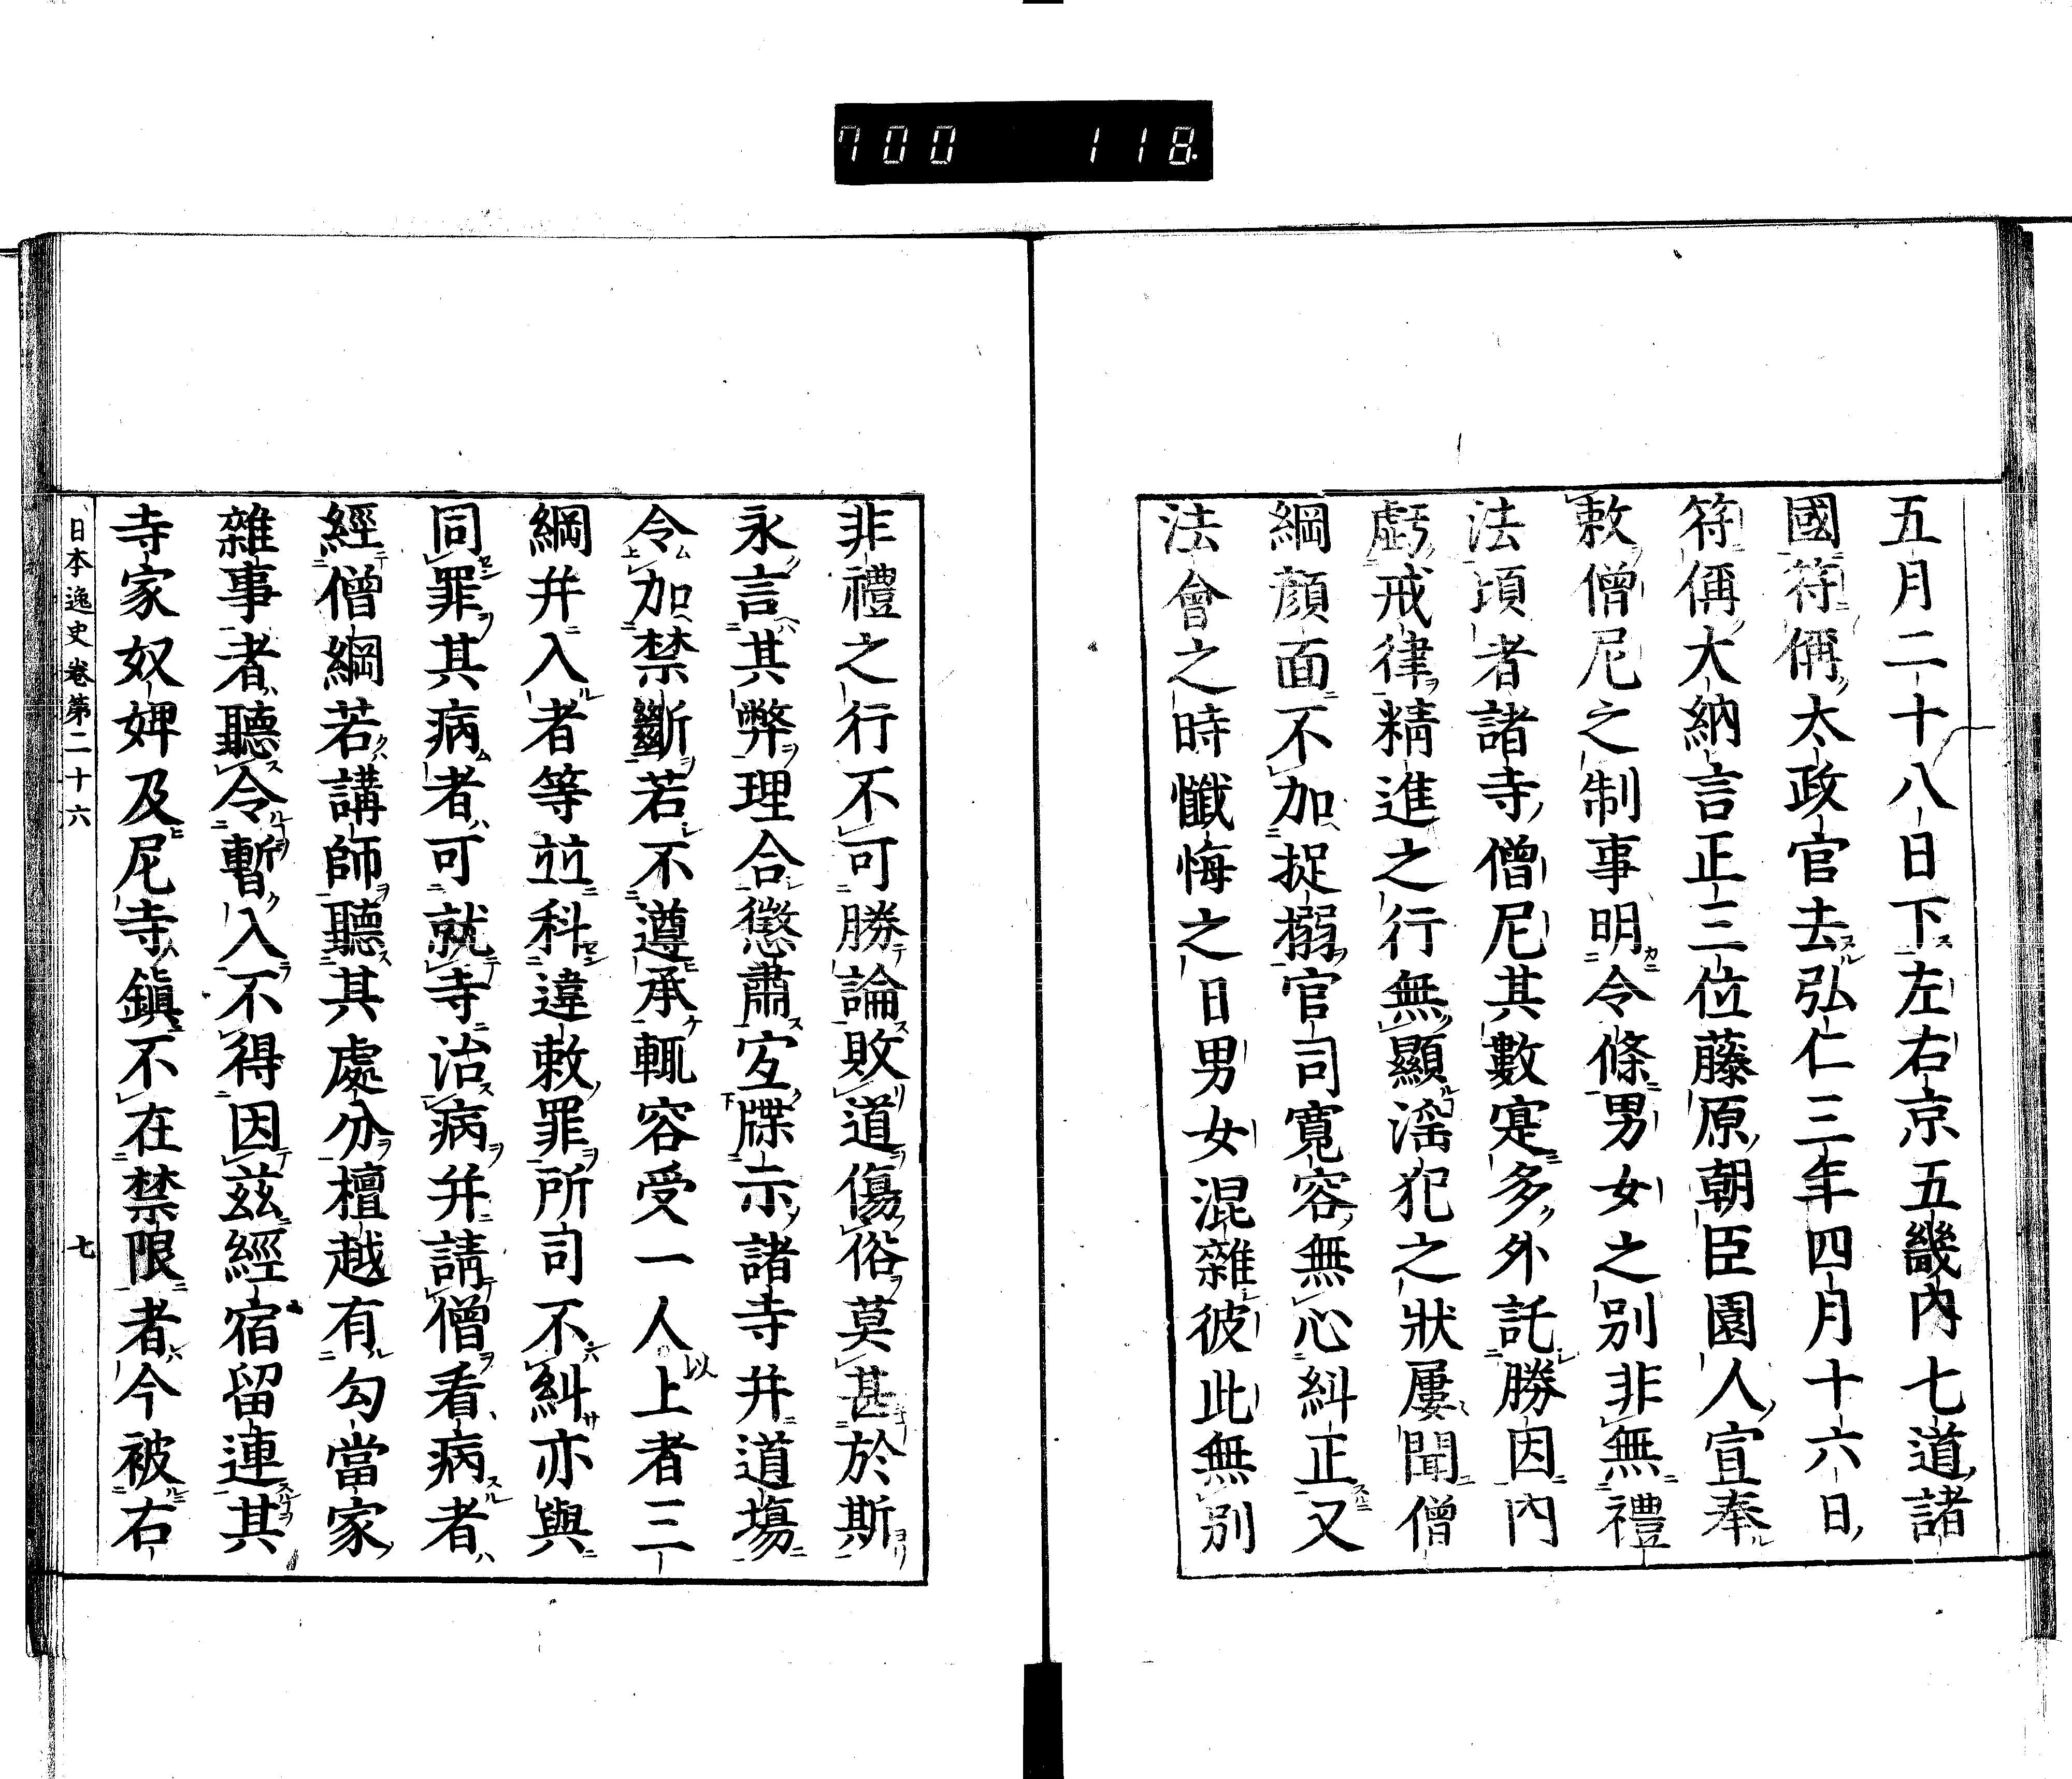 700 118.
五月二十八日下左右京五畿內七道諸
國符偁太政官去弘仁三年四月十六日
符偁大納言正三位藤原朝臣園人宣奉
敕僧尼之制事明令條男女之別非無禮
法頃者諸寺僧尼其數寔多外託勝因內
虧戒律精進之行無顯淫犯之狀屢聞僧
綱顏面不加捉搦官司寬容無心糾正又
法會之時懺悔之日男女混雜彼此無別
非禮之行不可勝論敗道傷俗莫甚於斯
永言其弊理合懲肅宜牒示諸寺并道場
令加禁斷若不遵承輒容受一人以上者三
綱并入者等竝科違敕罪所司不糾亦與
同罪其病者可就寺治病并請僧看病者
經僧綱若講師聽其處分檀越有勾當家
雜事者聽令暫入不得因茲經宿留連其
寺家奴婢及尼寺鎭不在禁限者今被右
日本逸史卷第二十六 七